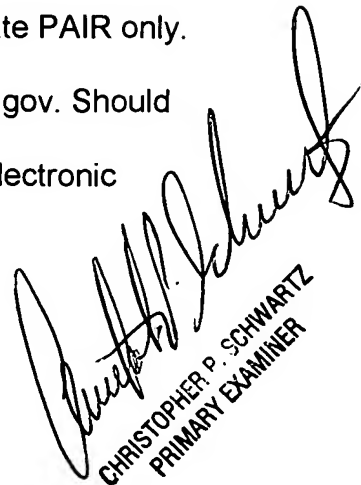 ate PAIR only.
gov. Should
lectronic
CHRISTOPHER P. SCHWARTZ
PRIMARY EXAMINER